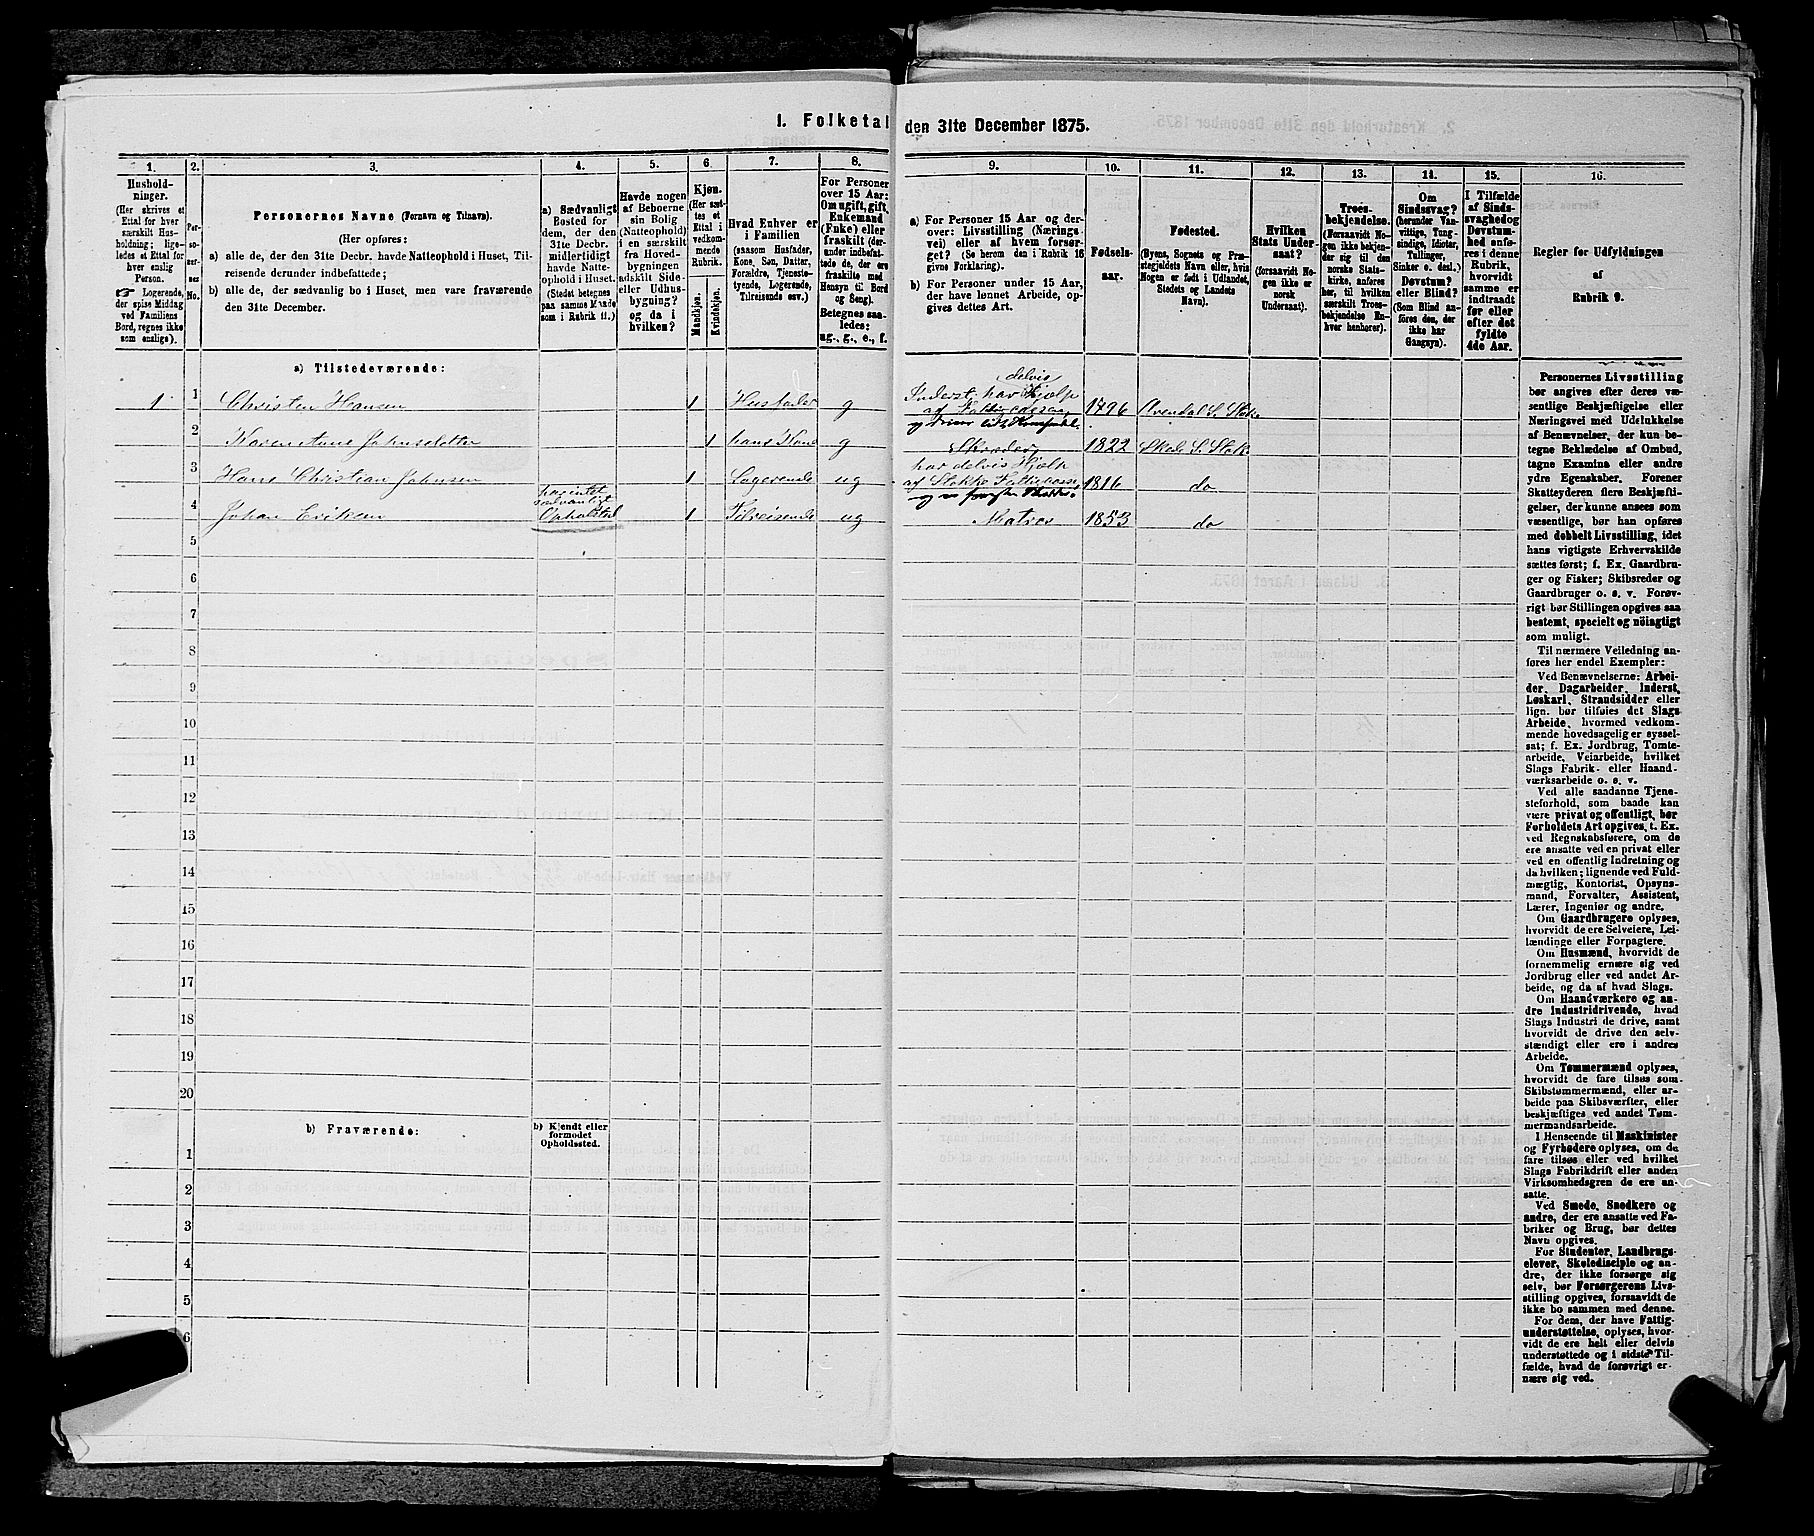 1. Folketal den 31te December 1875.
1. 2. 3. 4. 5. 6. 7. 8. 9. 10. 11. 12. 13. 14. 15. 16.
Hushold-
ninger.
(Her skrives et
Ettal for hver
særskilt Hus-
holdning; lige-
ledes et Ettal for
hver enslig
Person.
☞ Logerende,
der spise Middag
ved Familiens
Bord, regnes ikke
som enslige).
Per-
so-
ner-
nes
No.
Personernes Navne (Fornavn og Tilnavn).
(Her opføres:
a) alle de, der den 31te Decbr. havde Natteophold i Huset, Til-
reisende derunder indbefattede;
b) alle de, der sædvanlig bo i Huset, men vare fraværende
den 31te December.
a) Sædvanligt
Bosted for
dem, der den
31te Decbr.
midlertidigt
havde Natte-
ophold i Huset.
(Stedet betegnes
paa samme Maade
som i Rubrik 11.)
Havde nogen
af Beboerne
sin Bolig
(Natteophold)
i en særskilt
fra Hoved-
bygningen
adskilt Side-
eller Udhus-
bygning?
og da i
hvilken?
Kjøn.
(Her sæt-
tes et
Ettal i
vedkom-
mende
Rubrik.
Mandkjøn.
Kvindekjøn.
Hvad Enhver er
i Familien
(saasom Husfader,
Kone, Søn, Datter,
Forældre, Tjeneste-
tyende, Logerende,
Tilreisende osv.)
For Personer
over 15 Aar:
Om ugift, gift,
Enkemand
(Enke) eller
fraskilt (der-
under indbefat-
tede de, der ere
fraskilte med
Hensyn til Bord
og Seng).
Betegnes saa-
ledes:
ug., g., e., f.
a) For Personer 15 Aar og der-
over: Livsstilling (Nærings-
vei) eller af hvem forsør-
get? (Se herom den i Rubrik 16
givne Forklaring).
b) For Personer under 15 Aar,
der have lønnet Arbeide, op-
gives dettes Art.
Fødsels-
aar.
Fødested.
(Byens, Sognets og Præ-
stegjeldets Navn eller, hvis
Nogen er født i Udlandet,
Stedets og Landets
Navn).
Hvilken
Stats Under-
saat?
(forsaavidt No-
gen ikke er
norsk
Undersaat).
Troes-
bekjendelse.
(Forsaavidt No-
gen ikke bekjen-
der sig til den
norske Stats-
kirke, anføres
her, til hvilken
særskilt Troes-
bekjendelse En-
hver henhører).
Om
Sindssvag?
(herunder Van-
vittige, Tung-
sindige, Idioter,
Tullinger,
Sinker o. desl.)
Døvstum?
eller Blind?
(Som Blind an-
føres den, der
ikke har
Gangsyn).
I Tilfælde
af Sinds-
svaghed og
Døvstum-
hed anfø-
res i denne
Rubrik,
hvorvidt
samme er
indtraadt
før eller
efter det
fyldte
4de Aar.
Regler for Udfyldningen
af
Rubrik 9.
a) Tilstedeværende:
delvis
1 1 Christen Hansen 1 Husfader g Inderst, har Hjælp
af Fattigcassen 1796 Arendal S. Stokke
2 Karen Anne Johnsdatter 1 hans Kone g Skræderi 1822 Skede S. Stokke
3 Hans Christian Johnsen 1 Logerende ug har delvis Hjælp
af Stokke Fattigcasse 1816 do
har intet
sædvanligt
4 Johan Eriksen Opholdsted 1 Tilreisende ug Matros 1853 do
5
6
7
8
9
10
11
12
13
14
15
16
17
18
19
20
b) Fraværende:
b) Kjendt eller
formodet
Opholdssted.
1
2
3
4
5
6
Personernes Livsstilling
bør angives efter deres væ-
sentlige Beskjæftigelse eller
Næringsvei med Udelukkelse
af Benævnelser, der kun be-
tegne Beklædelse af Ombud,
tagne Examina eller andre
ydre Egenskaber. Forener
Skatteyderen flere Beskjæfti-
gelser, der kunne ansees som
væsentlige, bør han opføres
med dobbelt Livsstilling, idet
hans vigtigste Erhvervskilde
sættes først; f. Ex. Gaardbru-
ger og Fisker; Skibsreder og
Gaardbruger o. s. v. Forøv-
rigt bør Stillingen opgives saa
bestemt, specielt og nøiagtigt
som muligt.
Til nærmere Veiledning an-
føres her endel Exempler:
Ved Benævnelserne: Arbei-
der, Dagarbeider, Inderst,
Løskarl, Strandsidder eller
lign. bør tilføies det Slags
Arbeide, hvormed vedkom-
mende hovedsagelig er syssel-
sat; f. Ex. Jordbrug, Tomte-
arbeide, Veiarbeide, hvilket
Slags Fabrik- eller Haand-
værksarbeide o. s. v.
Ved alle saadanne Tjene-
steforhold, som baade kan
være privat og offentligt, bør
Forholdets Art opgives, t. Ex.
ved Regnskabsførere, om de
ere ansatte ved en privat eller
ved en offentlig Indretning og
da hvilken; lignende ved Fuld-
mægtig, Kontorist, Opsyns-
mand, Forvalter, Assistent,
Lærer, Ingeniør og andre.
Om Gaardbrugere oplyses,
hvorvidt de ere Selveiere, Lei-
lændinge eller Forpagtere.
Om Husmænd, hvorvidt de
fornemmelig ernære sig ved
Jordbrug eller ved andet Ar-
beide, og da af hvad Slags.
Om Haandværkere og an-
dre Industridrivende, hvad
Slags Industri de drive, samt
hvorvidt de drive den selv-
stændigt eller ere i andres
Arbeide.
Om Tømmermænd oplyses,
hvorvidt de fare tilsøs som
Skibstømmermænd, eller ar-
beide paa Skibsværfter, eller
beskjæftiges ved andet Tøm-
mermandsarbeide.
I Henseende til Maskinister
og Fyrbødere oplyses, om de
fare tilsøs eller ved hvilket
Slags Fabrikdrift eller anden
Virksomhedsgren de ere an-
satte.
Ved Smede, Snedkere og
andre, der ere ansatte ved Fa-
briker og Brug, bør dettes
Navn opgives.
For Studenter, Landbrugs-
elever, Skoledisciple og an-
dre, der ikke forsørge sig
selv, bør Forsørgerens Livs-
stilling opgives, forsaavidt de
ikke bo sammen med denne.
For dem, der have Fattig-
understøttelse, oplyses, hvor-
vidt de ere helt eller delvis
understøttede og i sidste Til-
fælde, hvad de forøvrigt er-
nære sig ved.